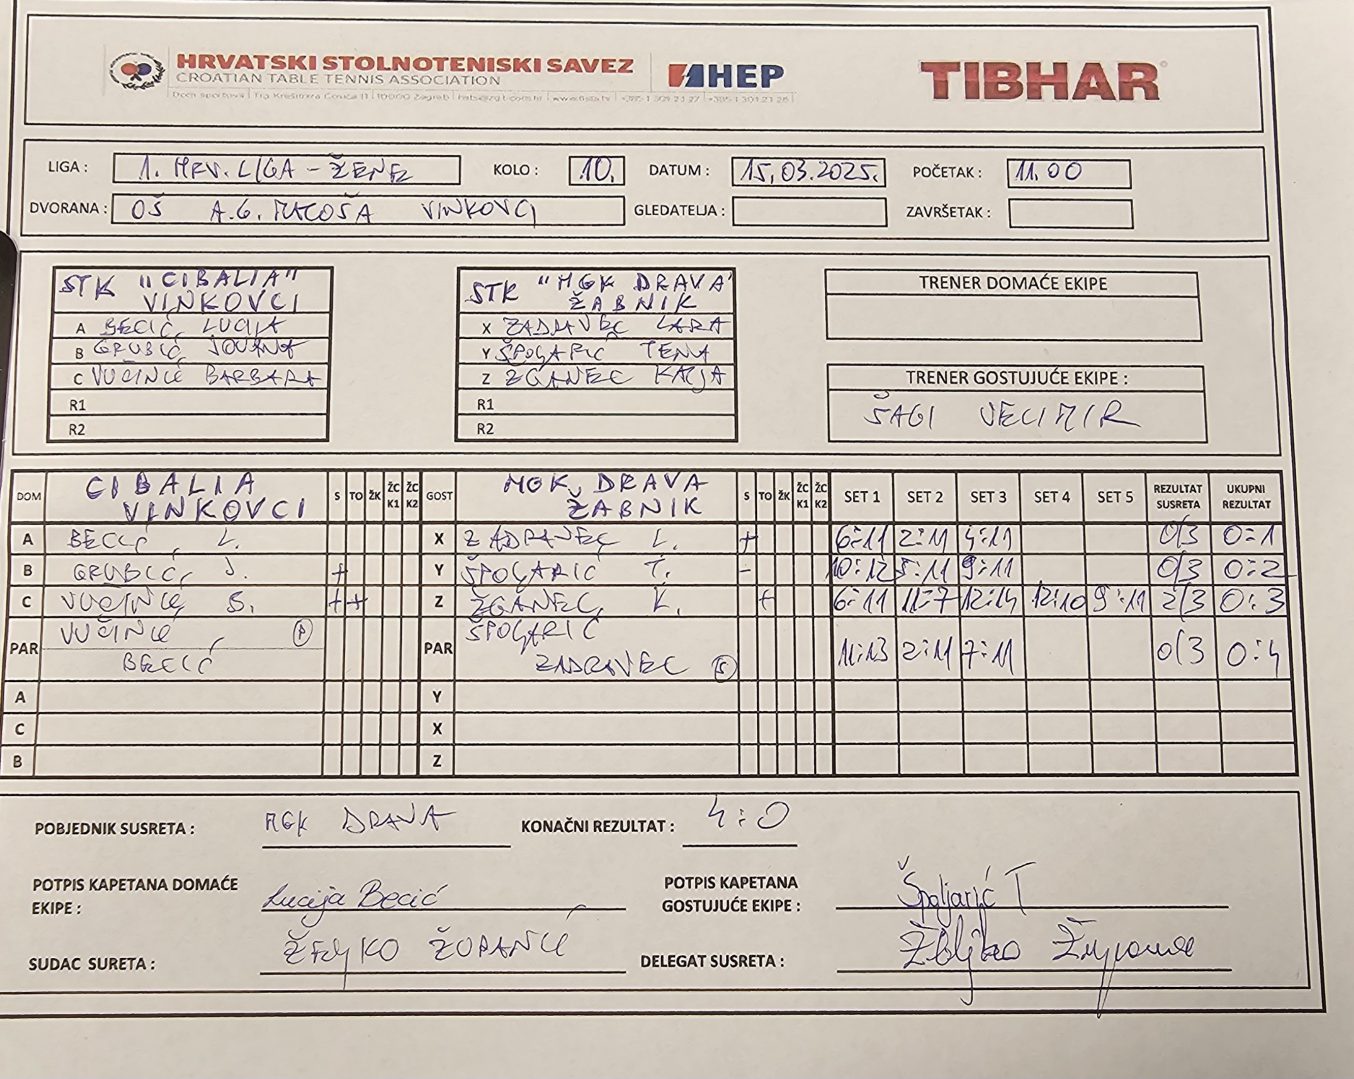 HRVATSKI STOLNOTENISKI SAVEZ
CROATIAN TABLE TENNIS ASSOCIATION
HEP
TIBHAR
LIGA : 1. HRV. LIGA - ŽENE KOLO : 10. DATUM : 15.03.2025. POČETAK : 11.00
DVORANA : OŠ A.G. MATOŠA VINKOVCI GLEDATELJA : ZAVRŠETAK :
STK "CIBALIA"
VINKOVCI
A BECIĆ, LUCIJA
B GRUBIĆ, JOVANA
C VUČINIĆ BARBARA
R1
R2
STK "MGK DRAVA"
ŽABNIK
X ZADRAVEC LARA
Y ŠPOLJARIĆ TENA
Z ŽGANEC KATJA
R1
R2
TRENER DOMAĆE EKIPE
TRENER GOSTUJUĆE EKIPE :
ŠAGI VELIMIR
DOM CIBALIA VINKOVCI S TO ŽK ŽC K1 ŽC K2 GOST MGK DRAVA ŽABNIK S TO ŽK ŽC K1 ŽC K2 SET 1 SET 2 SET 3 SET 4 SET 5 REZULTAT SUSRETA UKUPNI REZULTAT
A BECIĆ, L. X ZADRAVEC L. + 6:11 2:11 4:11 0/3 0:1
B GRUBIĆ, J. + Y ŠPOLJARIĆ T. - 10:12 5:11 9:11 0/3 0:2
C VUČINIĆ B. + + Z ŽGANEC, K. + 6:11 11:7 12:14 12:10 9:11 2/3 0:3
PAR VUČINIĆ, P PAR ŠPOLJARIĆ
BECIĆ ZADRAVEC S 11:13 2:11 7:11 0/3 0:4
A Y
C X
B Z
POBJEDNIK SUSRETA : MGK DRAVA KONAČNI REZULTAT : 4:0
POTPIS KAPETANA DOMAĆE EKIPE : Lucija Becić POTPIS KAPETANA GOSTUJUĆE EKIPE : Špoljarić T
SUDAC SURETA : ŽELJKO ŽUPANIĆ DELEGAT SUSRETA : Željko